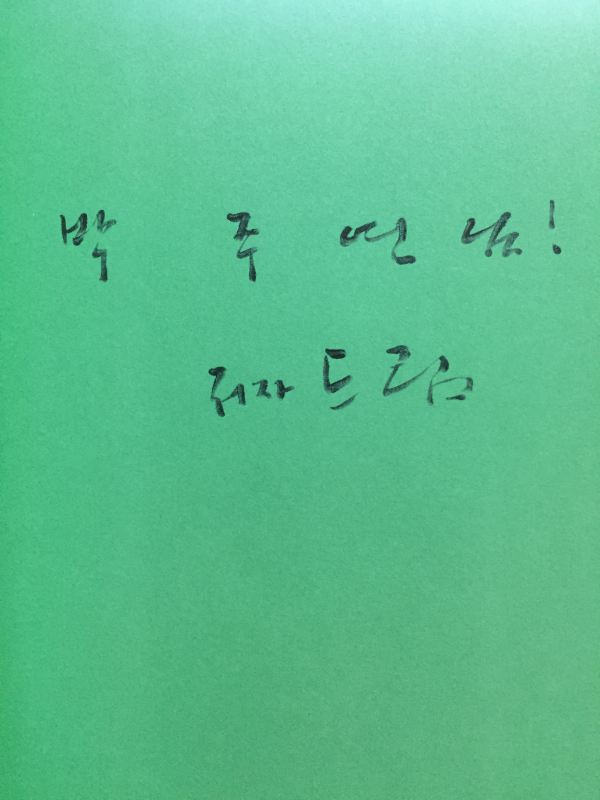 박 주 연 님!
저자 드림